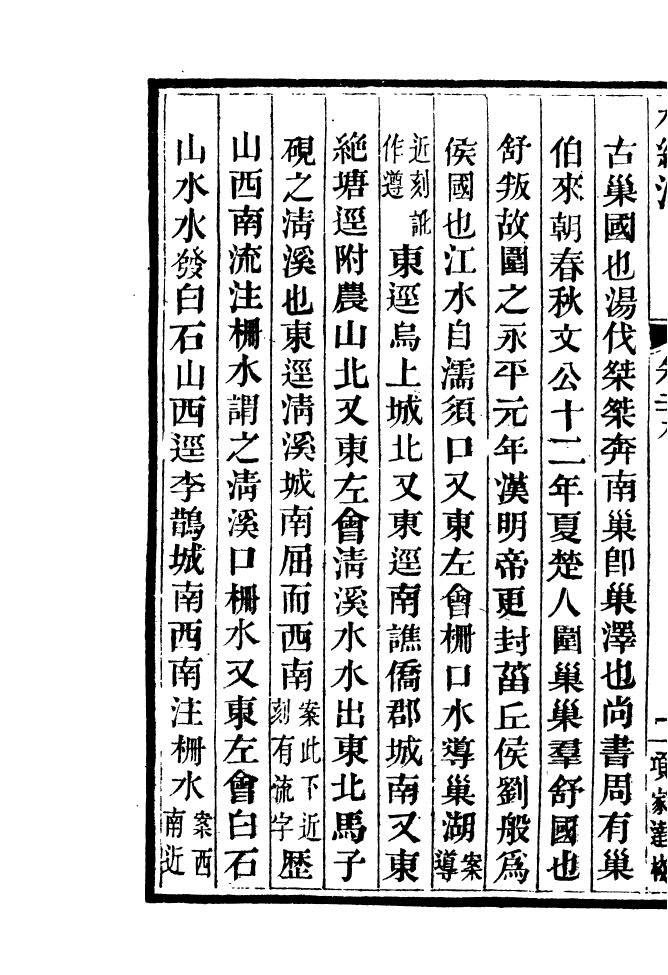 古巢國也湯伐桀桀奔南巢卽巢澤也尚書周有巢
伯來朝春秋文公十二年夏楚人圍巢巢羣舒國也
舒叛故圍之永平元年漢明帝更封菑丘侯劉般爲
侯國也江水自濡須口又東左會柵口水導巢湖案導
近刻訛作遵東逕烏上城北又東逕南譙僑郡城南又東
絶塘逕附農山北又東左會清溪水水出東北馬子
硯之清溪也東逕清溪城南屈而西南案此下近刻有流字歴
山西南流注柵水謂之清溪口柵水又東左會白石
山水水發白石山西逕李鵲城南西南注柵水案西南近